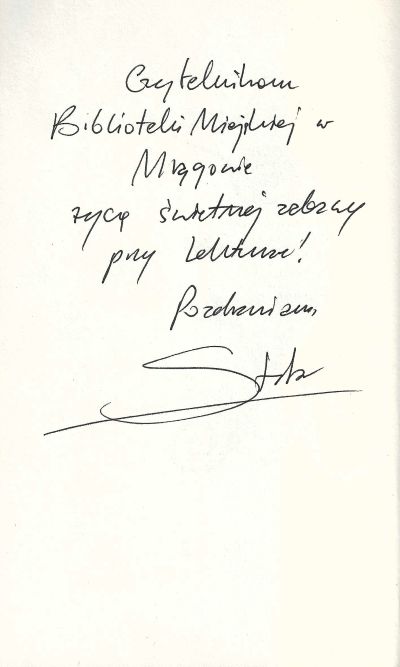 Czytelnikom
Biblioteki Miejskiej w
Mrągowie
życzę świetnej zabawy
przy lekturze!
Pozdrawiam,